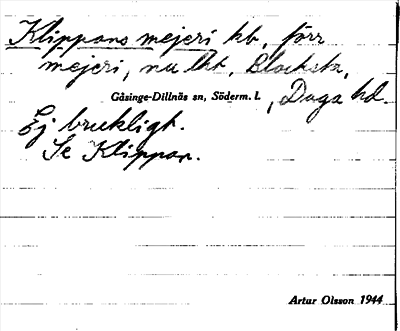 Klippans mejeri hb, förr
mejeri, nu lht, Blacksta,
Gåsinge-Dillnäs sn, Söderm. l. , Daga hd.
Ej brukligt.
Se Klippan.
Artur Olsson 1944